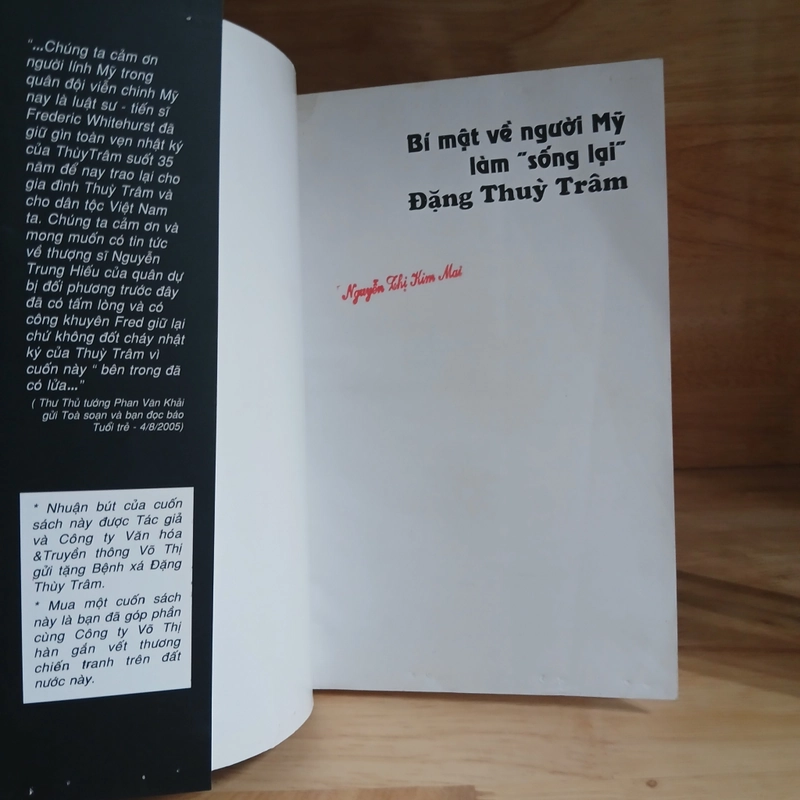 "...Chúng ta cảm ơn
người lính Mỹ trong
quân đội viễn chinh Mỹ
nay là luật sư - tiến sĩ
Frederic Whitehurst đã
giữ gìn toàn vẹn nhật ký
của ThùyTrâm suốt 35
năm để nay trao lại cho
gia đình Thuỳ Trâm và
cho dân tộc Việt Nam
ta. Chúng ta cảm ơn và
mong muốn có tin tức
về thượng sĩ Nguyễn
Trung Hiếu của quân dự
bị đối phương trước đây
đã có tấm lòng và có
công khuyên Fred giữ lại
chứ không đốt cháy nhật
ký của Thuỳ Trâm vì
cuốn này " bên trong đã
có lửa..."
( Thư Thủ tướng Phan Văn Khải
gửi Toà soạn và bạn đọc báo
Tuổi trẻ - 4/8/2005)
* Nhuận bút của cuốn
sách này được Tác giả
và Công ty Văn hóa
&Truyền thông Võ Thị
gửi tặng Bệnh xá Đặng
Thùy Trâm.
* Mua một cuốn sách
này là bạn đã góp phần
cùng Công ty Võ Thị
hàn gắn vết thương
chiến tranh trên đất
nước này.
Bí mật về người Mỹ
làm "sống lại"
Đặng Thuỳ Trâm
Nguyễn Thị Kim Mai